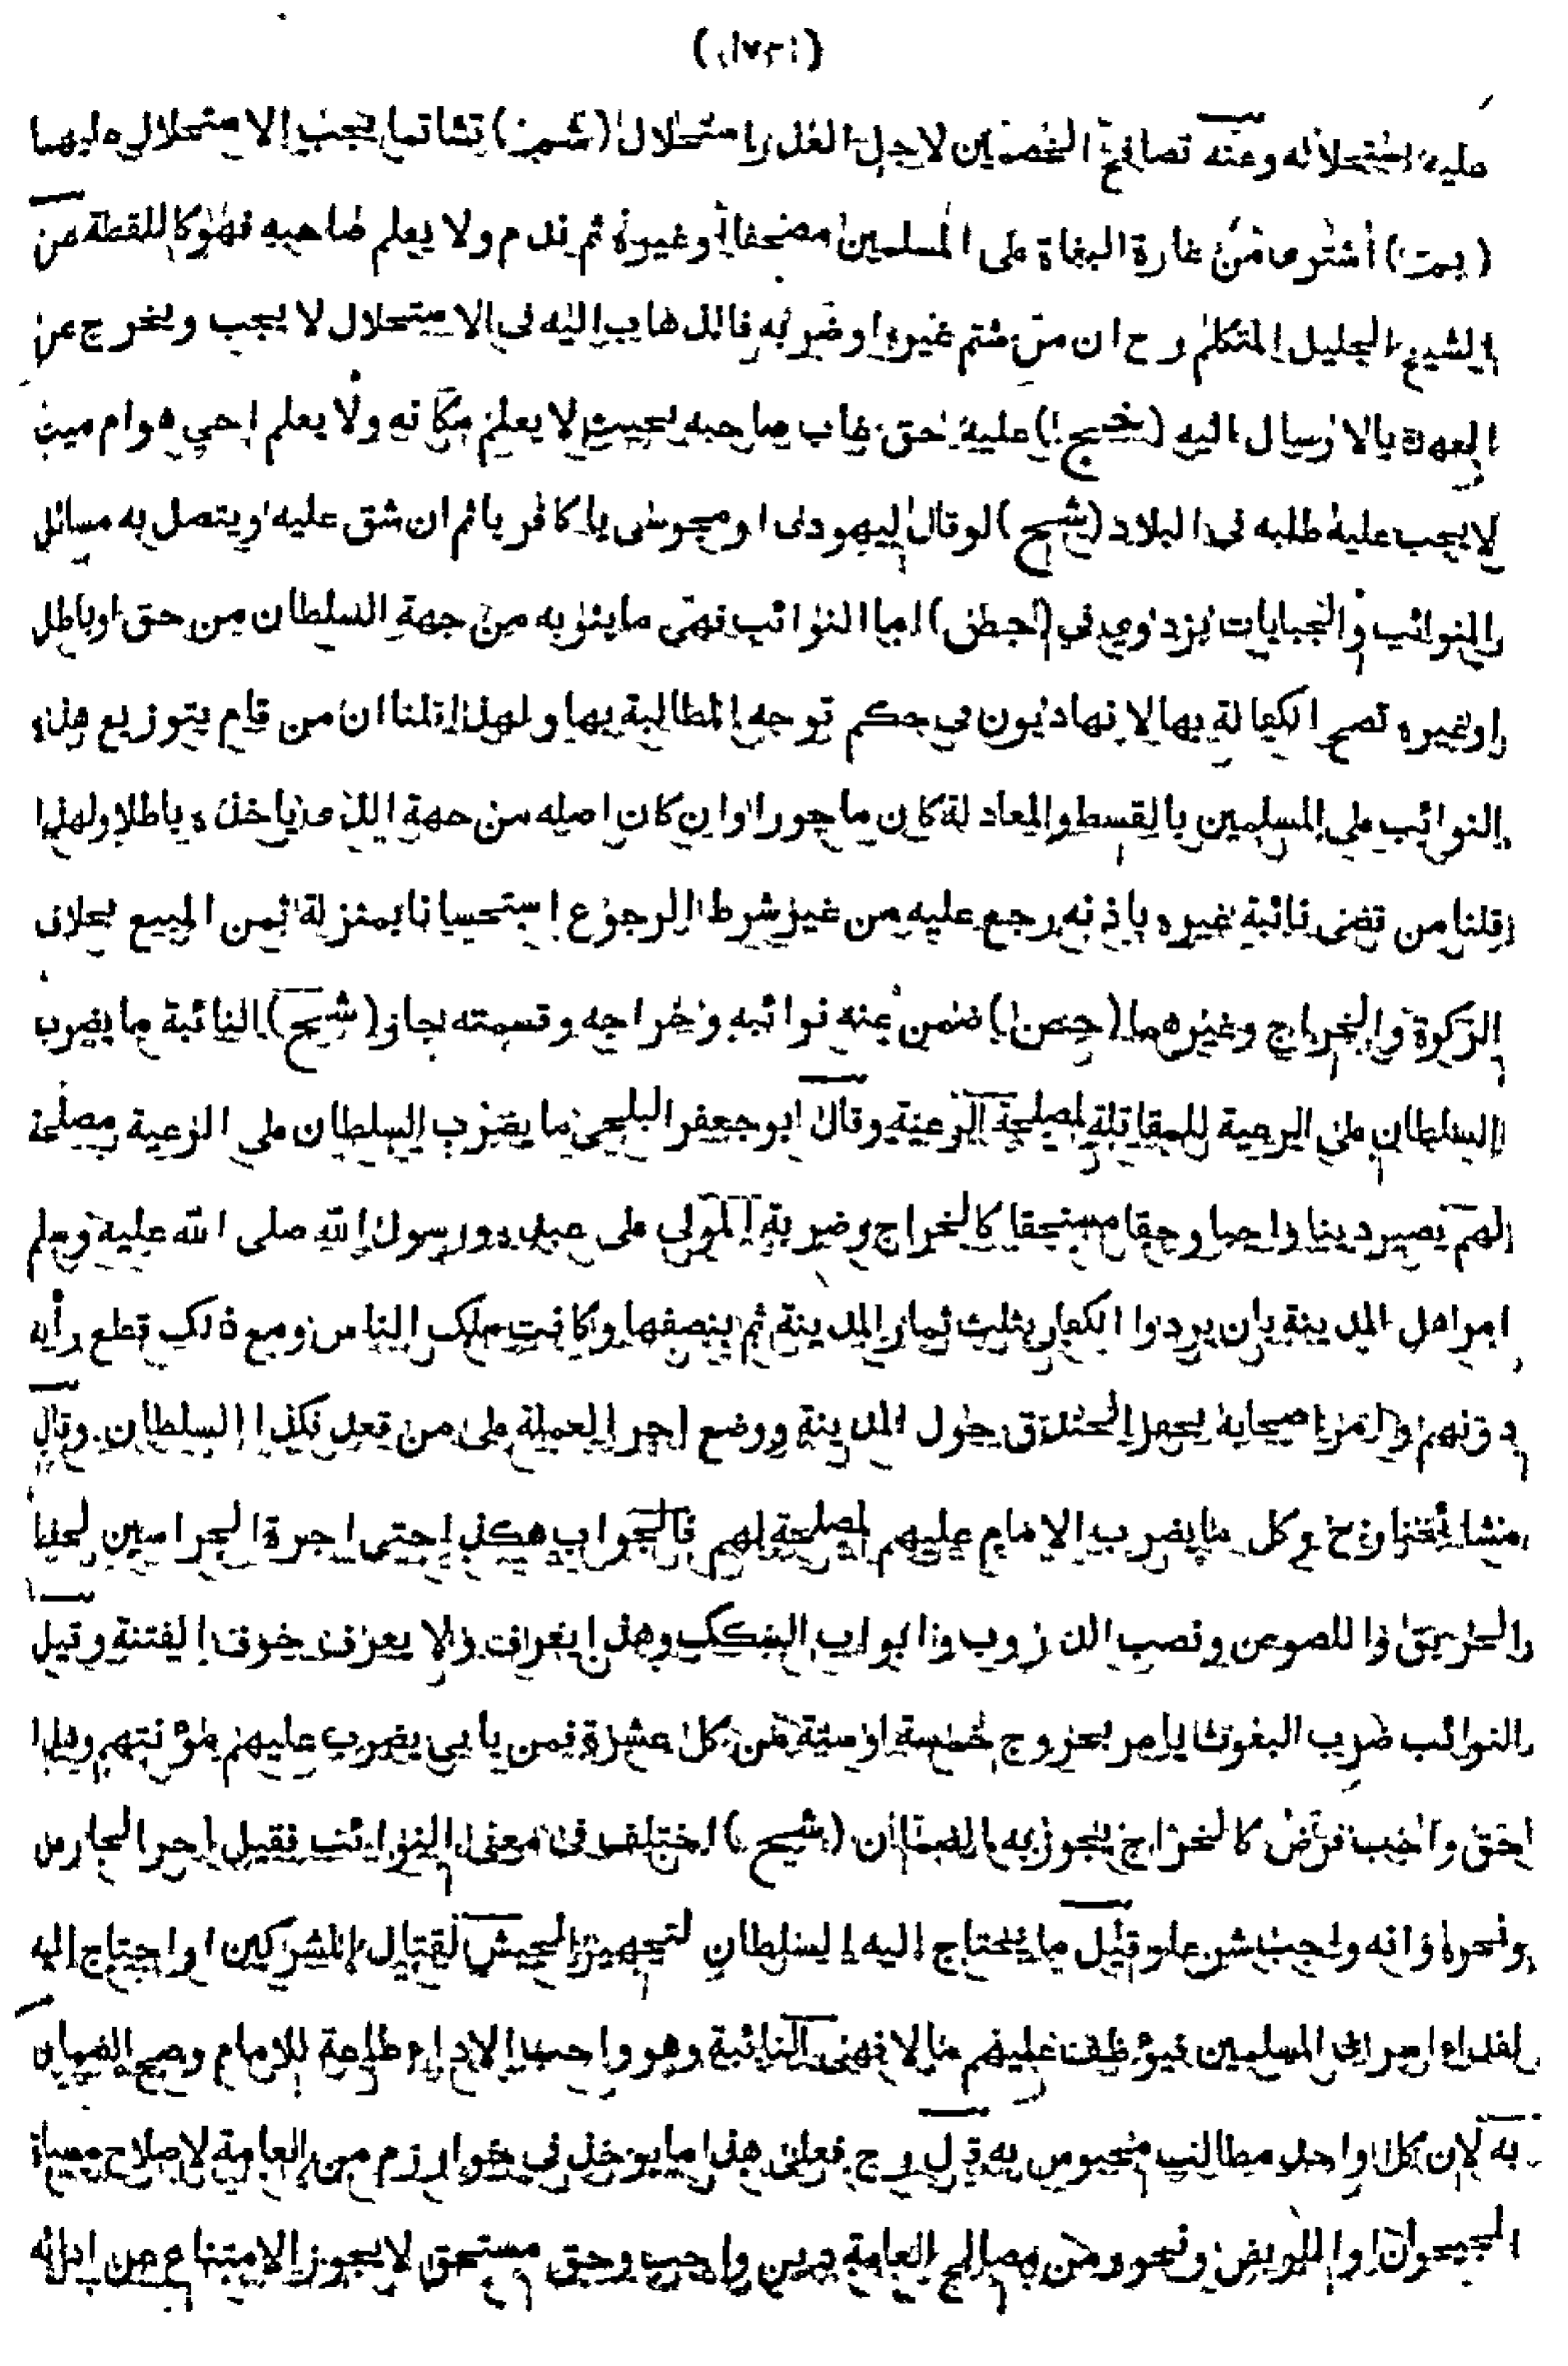 عليه استحلاله وعنه تصالح الخصمين لاجل العذر استحلال (شمز) تشاتما يجب الاستحلال عليهما
(بمت) اشترى من غارة البغاة على المسلمين مصحفا أو غيره ثم ندم ولا يعلم صاحبه فهو كاللقطة عن
الشيخ الجليل المتكلم رح ان من شتم غيره او ضربه فالذهاب اليه في الاستحلال لا يجب ويخرج عن
العهدة بالارسال اليه (خج) عليه حق غاب صاحبه بحيث لا يعلم مكانه ولا يعلم احي هو ام ميت
لا يجب عليه طلبه في البلاد (شيح) لو قال ليهودى او مجوسى يا كافر ياثم ان شق عليه ويتصل به مسائل
النوائب والجبايات بزدوى في (جط) اما النوائب فهى ما ينوبه من جهة السلطان من حق او باطل
او غيره تصح الكفالة بها لانها ديون في حكم توجه المطالبة بها ولهذا قلنا ان من قام بتوزيع هذه
النوائب على المسلمين بالقسط والمعادلة كان ماجورا وان كان اصله من جهة الذى ياخذه باطلا ولهذا
قلنا من قضى نائبة غيره باذنه رجع عليه من غير شرط الرجوع استحسانا بمنزلة ثمن المبيع بخلاف
الزكوة والخراج وغيرهما (جص) ضمن عنه نوائبه وخراجه وقسمته جاز (شيح) النائبة ما يضرب
السلطان على الرعية للمقاتلة لمصلحة الرعية وقال ابو جعفر البلخى ما يضرب السلطان على الرعية مصلحة
لهم يصير دينا واجبا وحقا مستحقا كالخراج وضريبة المولى على عبده ورسول الله صلى الله عليه وسلم
امر اهل المدينة بان يردوا الكفار بثلث ثمار المدينة ثم بنصفها وكانت ملك الناس ومع ذلك قطع رأيه
دونهم والزم اصحابه بحفر الخندق حول المدينة ووضع اجر العملة على من قعد فكذا السلطان وقال
مشائخنا رح وكل ما يضرب الامام عليهم لمصلحة لهم فالجواب هكذا حتى اجرة الحراسين لحفظ
الطريق واللصوص ونصب الدروب وابواب السكك وهذا يعرف ولا يعرف خوف الفتنة وقيل
النوائب ضرب البعوث يامر بخروج خمسة او ستة من كل عشرة فمن يابى يضرب عليهم مؤنتهم وهذا
حق واجب فرض كالخراج يجوز به الضمان (شيح) اختلف في معنى النوائب فقيل اجر الحارس
ونحوه فانه واجب شرعا وقيل ما يحتاج اليه السلطان لتجهيز الجيش لقتال المشركين او احتاج اليه
لفداء اسرى المسلمين فيوظف عليهم مالا فهى النائبة وهو واجب الاداء طاعة للامام وصح الضمان
به لان كل واحد مطالب محبوس به قال رح فعلى هذا ما يوخذ في خوارزم من العامة لاصلاح مسناة
الجيحون او الربض ونحوه من مصالح العامة دين واجب وحق مستحق لا يجوز الامتناع عن ادائه